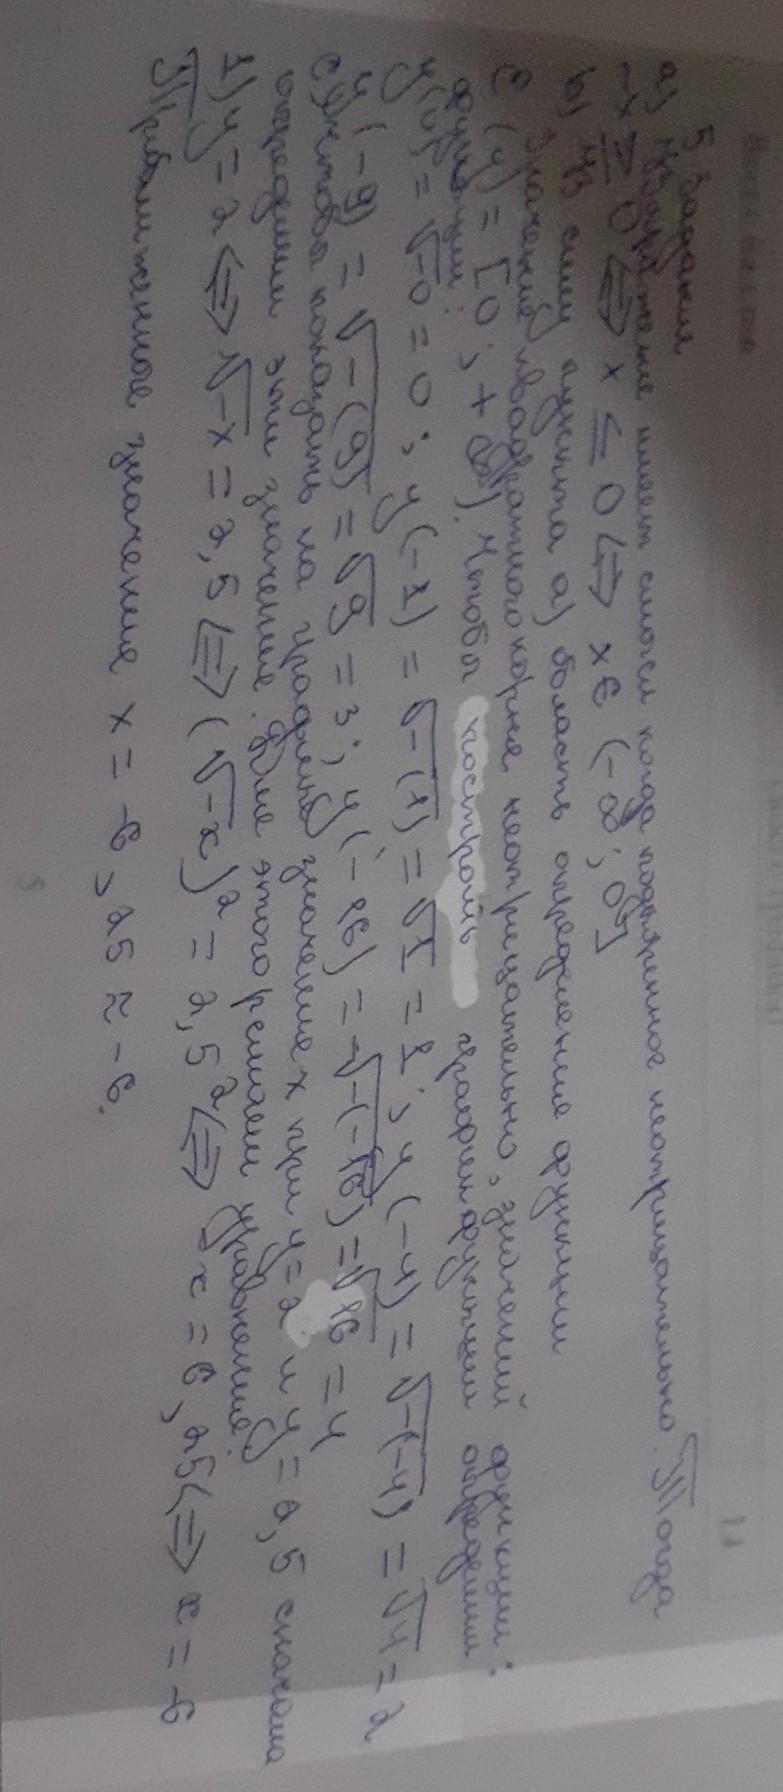 5 Задания
а) Выражение имеет смысл когда подкоренное неотрицательно. Тогда
-x ≥ 0 <=> x ≤ 0 <=> x ∈ (-∞; 0]
b) Из силу пункта а) область определение функции
Значение квадратного корня неотрицательно, значений функции:
E(y) = [0; +∞). Чтобы построить график функции определим
функции:
y(0) = √-0 = 0; y(-1) = √-(1) = √1 = 1; y(-4) = √-(-4) = √4 = 2
y(-9) = √-(9) = √9 = 3; y(-16) = √-(-16) = √16 = 4
с) Чтобы показать на графике значение x при y=2 и y=2,5 сначала
определим эти значение. Для этого решаем уравнение:
1) y = 2 <=> √-x = 2,5 <=> (√-x)² = 2,5² <=> x = 6,25 <=> x = -6
Приближенное значение x = -6,25 ≈ -6.